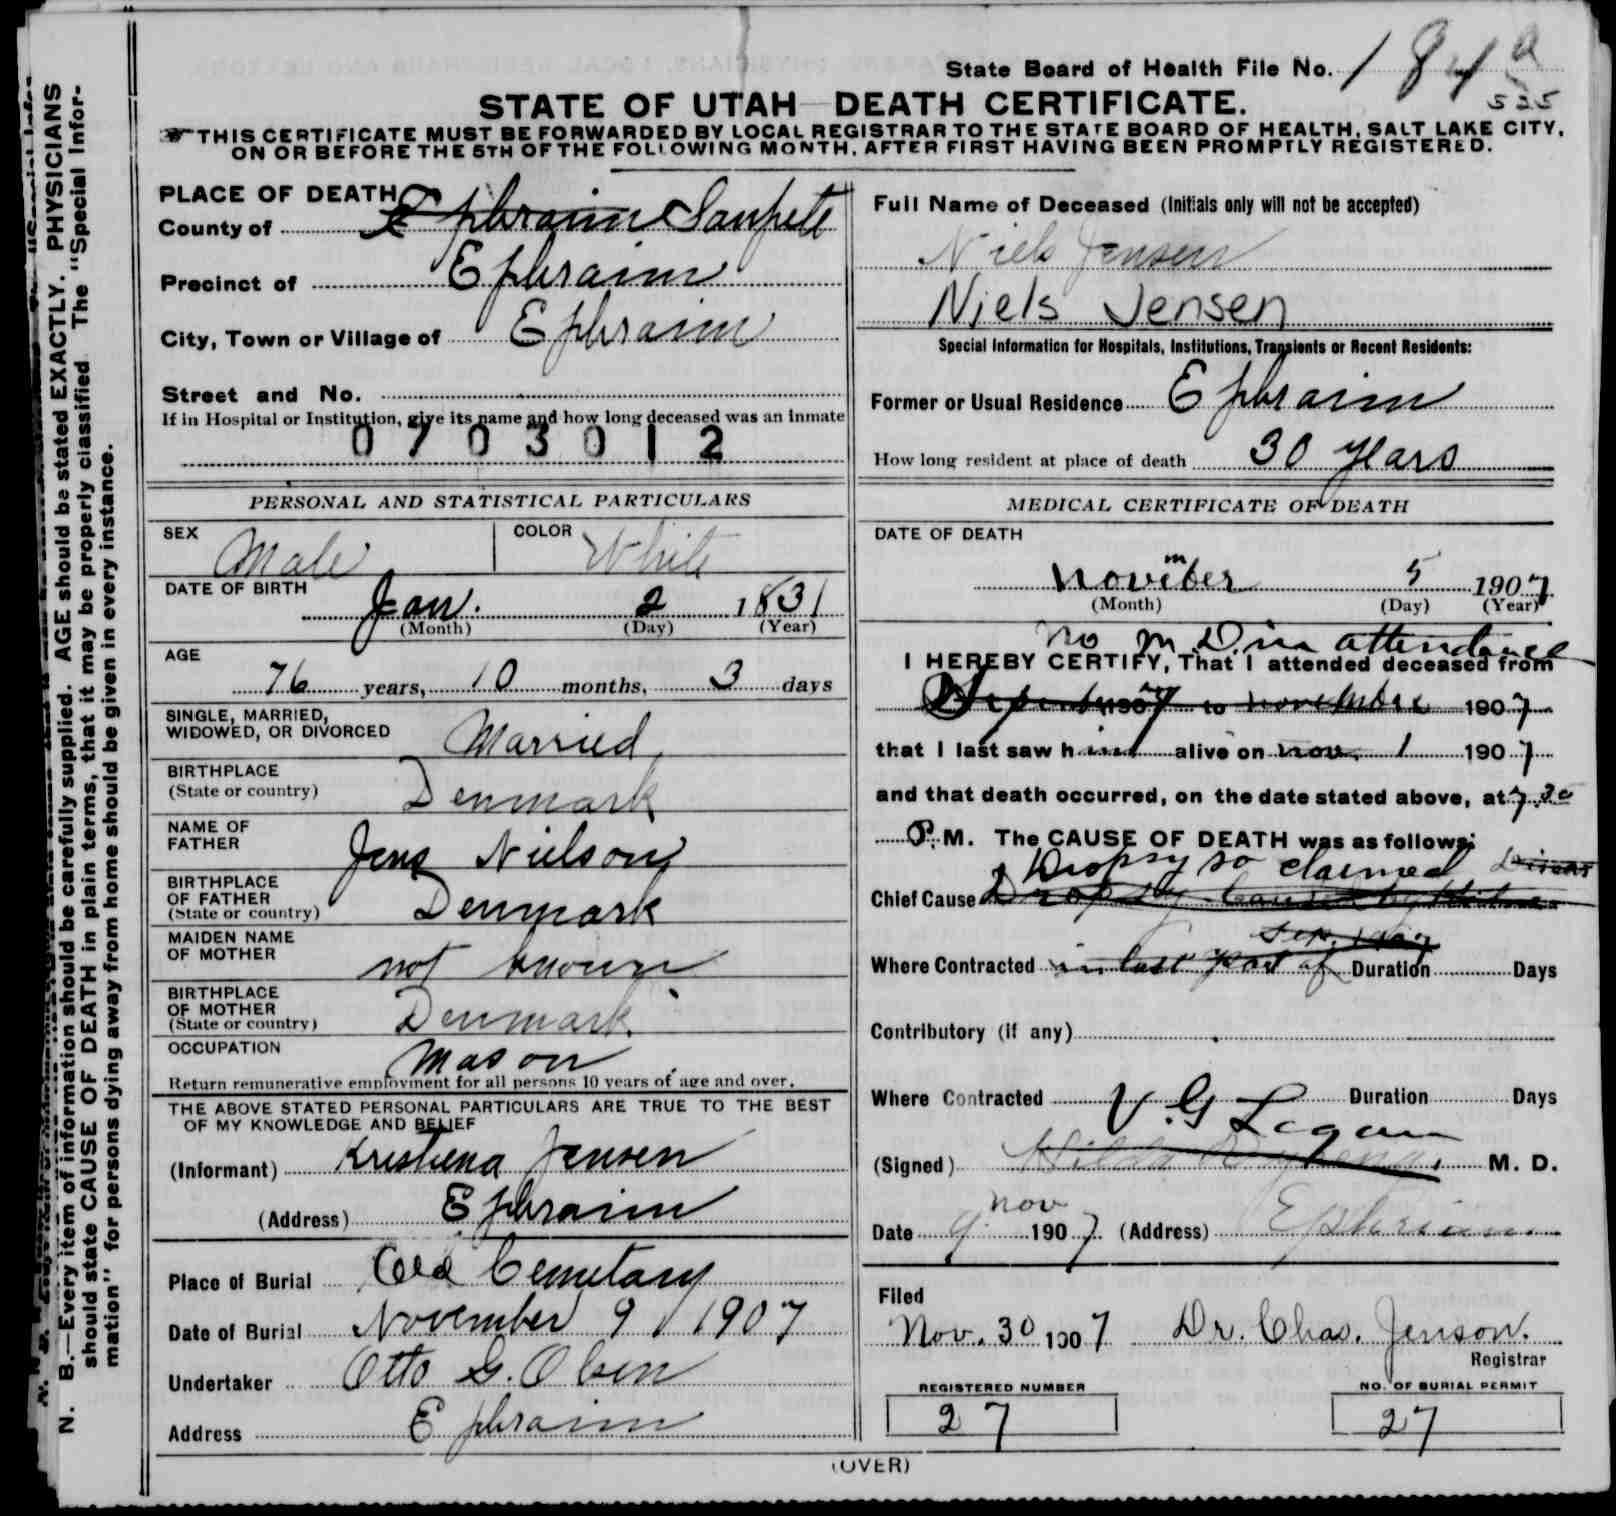 State Board of Health File No. 184a
525
STATE OF UTAH—DEATH CERTIFICATE.
THIS CERTIFICATE MUST BE FORWARDED BY LOCAL REGISTRAR TO THE STATE BOARD OF HEALTH, SALT LAKE CITY,
ON OR BEFORE THE 5TH OF THE FOLLOWING MONTH, AFTER FIRST HAVING BEEN PROMPTLY REGISTERED.
N. B.—Every item of information should be carefully supplied. AGE should be stated EXACTLY. PHYSICIANS
should state CAUSE OF DEATH in plain terms, that it may be properly classified. The "Special Infor-
mation" for persons dying away from home should be given in every instance.
PLACE OF DEATH
County of Ephraim Sanpete
Precinct of Ephraim
City, Town or Village of Ephraim
Street and No.
If in Hospital or Institution, give its name and how long deceased was an inmate
0703012
PERSONAL AND STATISTICAL PARTICULARS
SEX Male COLOR White
DATE OF BIRTH
Jan. 2 1831
(Month) (Day) (Year)
AGE
76 years, 10 months, 3 days
SINGLE, MARRIED,
WIDOWED, OR DIVORCED Married
BIRTHPLACE
(State or country) Denmark
NAME OF
FATHER Jens Nielson
BIRTHPLACE
OF FATHER
(State or country) Denmark
MAIDEN NAME
OF MOTHER not known
BIRTHPLACE
OF MOTHER
(State or country) Denmark
OCCUPATION Mason
Return remunerative employment for all persons 10 years of age and over.
THE ABOVE STATED PERSONAL PARTICULARS ARE TRUE TO THE BEST
OF MY KNOWLEDGE AND BELIEF
(Informant) Kristiena Jensen
(Address) Ephraim
Place of Burial Old Cemetary
Date of Burial November 9 1907
Undertaker Otto G. Olsen
Address Ephraim
Full Name of Deceased (Initials only will not be accepted)
Niels Jensen
Niels Jensen
Special Information for Hospitals, Institutions, Transients or Recent Residents:
Former or Usual Residence Ephraim
How long resident at place of death 30 years
MEDICAL CERTIFICATE OF DEATH
DATE OF DEATH
November 5 1907
(Month) (Day) (Year)
no M.D. in attendance
I HEREBY CERTIFY, That I attended deceased from
1907 to november 1907
that I last saw him alive on nov. 1 1907
and that death occurred, on the date stated above, at 7.30
P. M. The CAUSE OF DEATH was as follows:
Dropsy so claimed
Chief Cause Dropsy
Where Contracted in last part of Duration Days
Contributory (if any)
Where Contracted Duration Days
V. G Logan
(Signed) M. D.
Date 9 nov 1907 (Address) Ephriam
Filed
Nov. 30 1907 Dr. Chas. Jenson.
Registrar
REGISTERED NUMBER
27
NO. OF BURIAL PERMIT
27
(OVER)